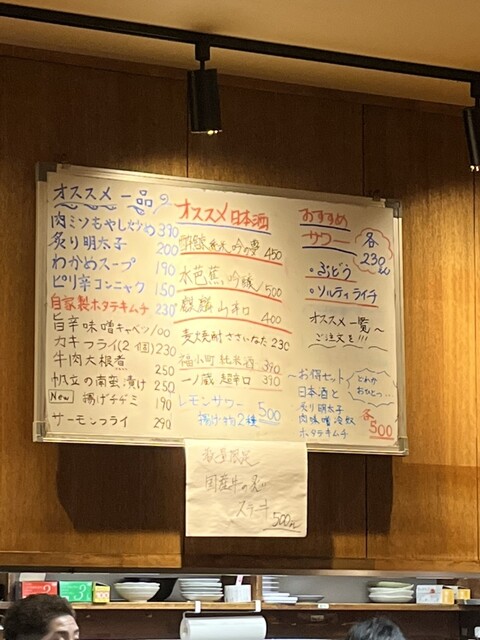 オススメ一品の
肉ミソもやし炒め 390
炙り明太子 200
わかめスープ 190
ピリ辛コンニャク 150
自家製ホタテキムチ 230
旨辛味噌キャベツ 100
カキフライ(2個) 230
牛肉大根煮 250
帆立の南蛮漬け 250
New 揚げチヂミ 190
サーモンフライ 290
オススメ日本酒
純米 吟の夢 450
水芭蕉 吟醸 500
麒麟山 辛口 400
麦焼酎 ささいなた 230
福小町 純米酒 390
一ノ蔵 超辛口 390
レモンサワー 500
揚げ物2種
おすすめ
サワー 各230えん
・ぶどう
・ソルティライチ
オススメ一覧〜
ご注文を!!!
〜お得セット
日本酒と
炙り明太子
肉味噌冷奴
ホタテキムチ
どれか
おひとつ…
各500
数量限定
国産牛の
ステーキ
500えん